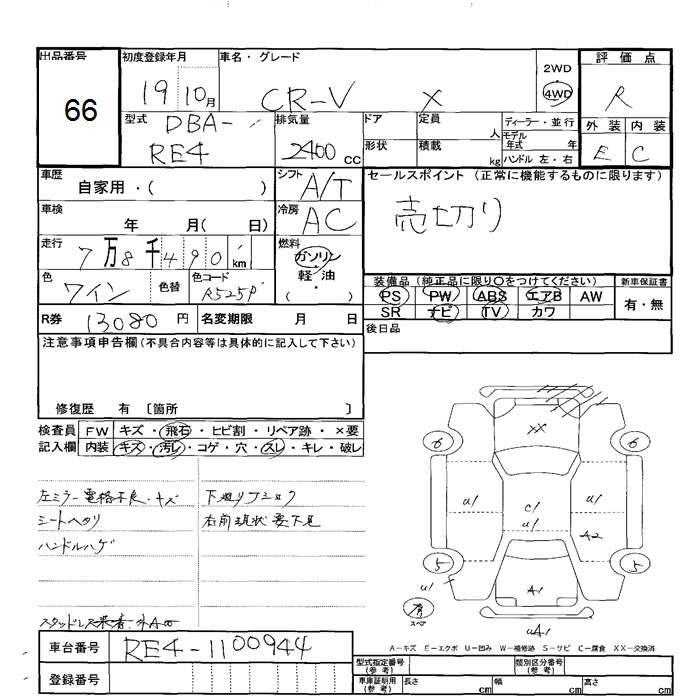 出品番号 初度登録年月 車名・グレード 評価点
66
19 10月 CR-V X 2WD 4WD R
型式 DBA-RE4 排気量 2400cc ドア 定員 人 ディーラー・並行
形状 積載 kg モデル年式 年 ハンドル 左・右
外装 内装
E C
車歴 自家用・( ) シフト A/T セールスポイント (正常に機能するものに限ります)
車検 年 月( 日) 冷房 AC 売切り
走行 7万8千490 km 燃料 ガソリン・軽油・( )
色 ワイン 色替 色コード R525P
装備品 (純正品に限り○をつけてください) 新車保証書
PS PW ABS エアB AW 有・無
SR ナビ TV カワ
R券 13080円 名変期限 月 日 後日品
注意事項申告欄 (不具合内容等は具体的に記入して下さい)
修復歴 有 〔箇所 〕
検査員記入欄 FW キズ・飛石・ヒビ割・リペア跡・×要
内装 キズ・汚レ・コゲ・穴・スレ・キレ・破レ
左ミラー電格不良・キズ 下廻リ
シートヘタリ 右前現状要下見
ハンドルハゲ
スタッドレス装着
XX
6 6
U1 C1 U1 U1
A2
5 5
U1 A1
有 スペア
UA1
A-キズ E-エクボ U-凹み W-補修跡 S-サビ C-腐食 XX-交換済
車台番号 RE4-1100944
登録番号
型式指定番号(参考) 類別区分番号(参考)
車庫証明用(参考) 長さ cm 幅 cm 高さ cm